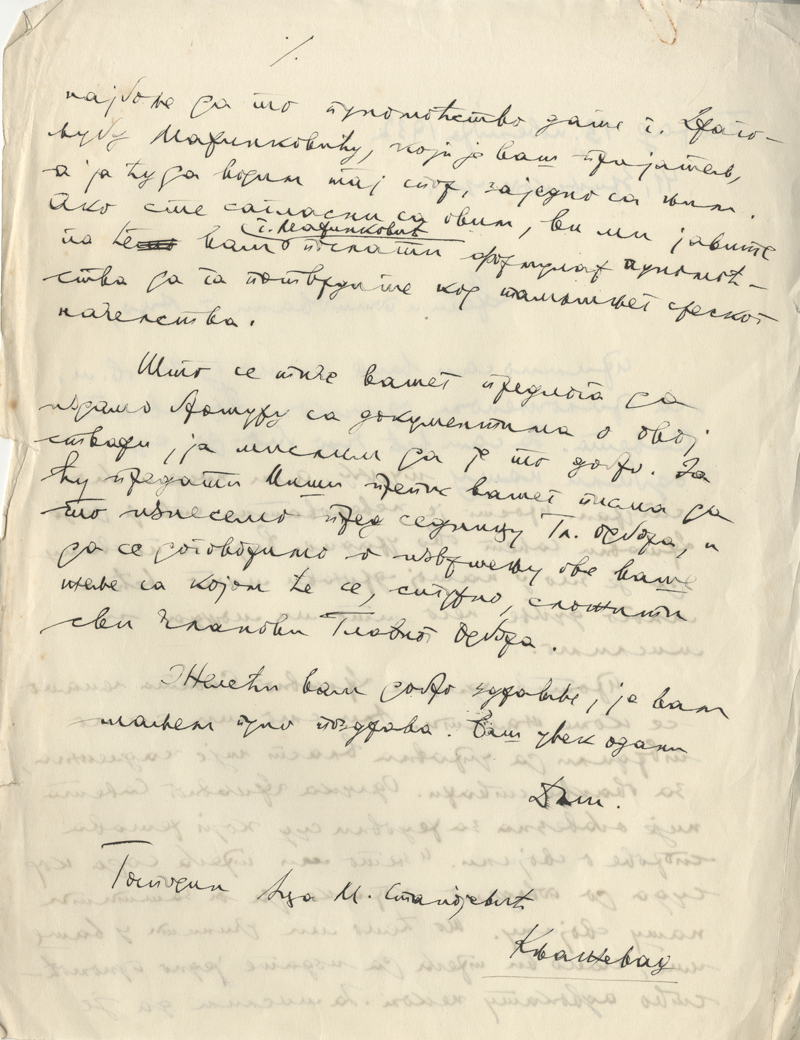 најбоље да то пуномоћство дате г. Драго-
љубу Маринковићу, који је ваш пријатељ,
а ја ћу да водим тај спор, заједно са њим.
Ако сте сагласни са овим, ви ми јавите
г. Маринковић
па ће вам послати формулар пуномоћ-
ства да га потврдите код тамошњег среског
начелства.
Што се тиче вашег предлога да
издамо са документима о овој
ствари, ја мислим да је то добро. Ја
ћу предати Миши препис вашег писма да
то изнесемо пред седницу Гл. Одбора, и
да се договоримо о извршењу ове ваше
жеље са којом ће се, сигурно, сложити
сви чланови Главног Одбора.
Желећи вам добро здравље, ја вам
шаљем пуно поздрава. Ваш увек одани
Господин Аца М. Станојевић
Књажевац